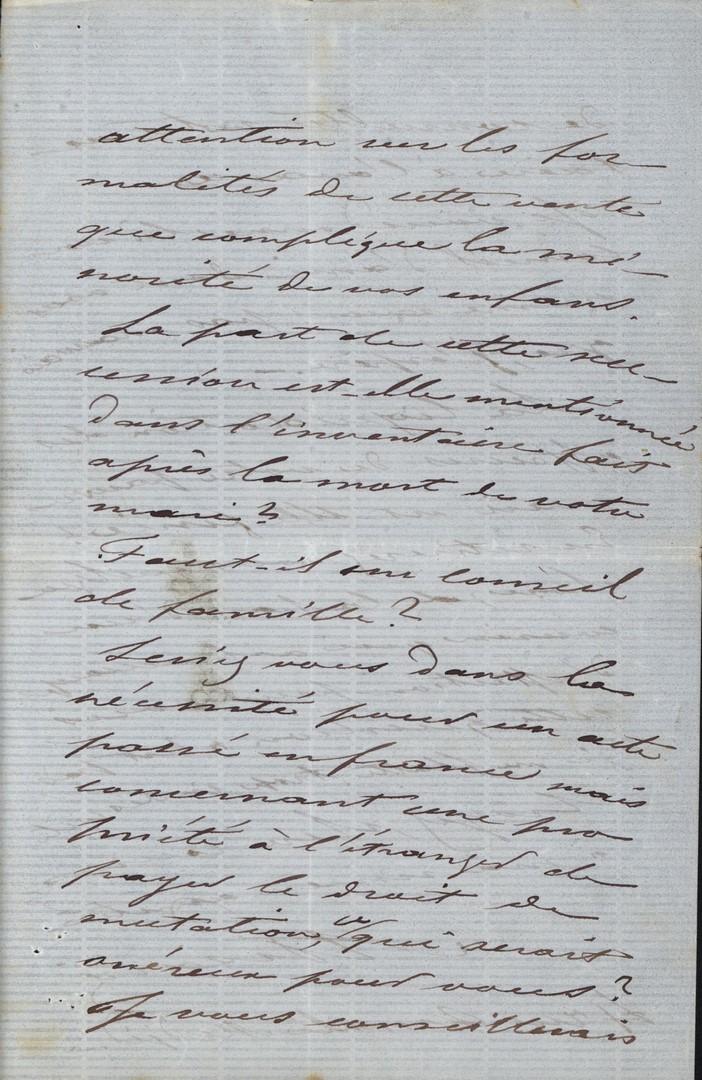 attention sur les for
malités de cette vente
que complique la mi-
norité de vos enfans.
La part de cette suc-
cession est-elle mentionnée
dans l'inventaire fait
après la mort de votre
mari?
Faut-il un conseil
de famille?
Seriez vous dans la
nécessité pour un acte
passé en france mais
concernant une pro
priété à l'étranger de
payer le droit de
mutation, qui serait
onéreux pour vous?
Je vous conseillerais